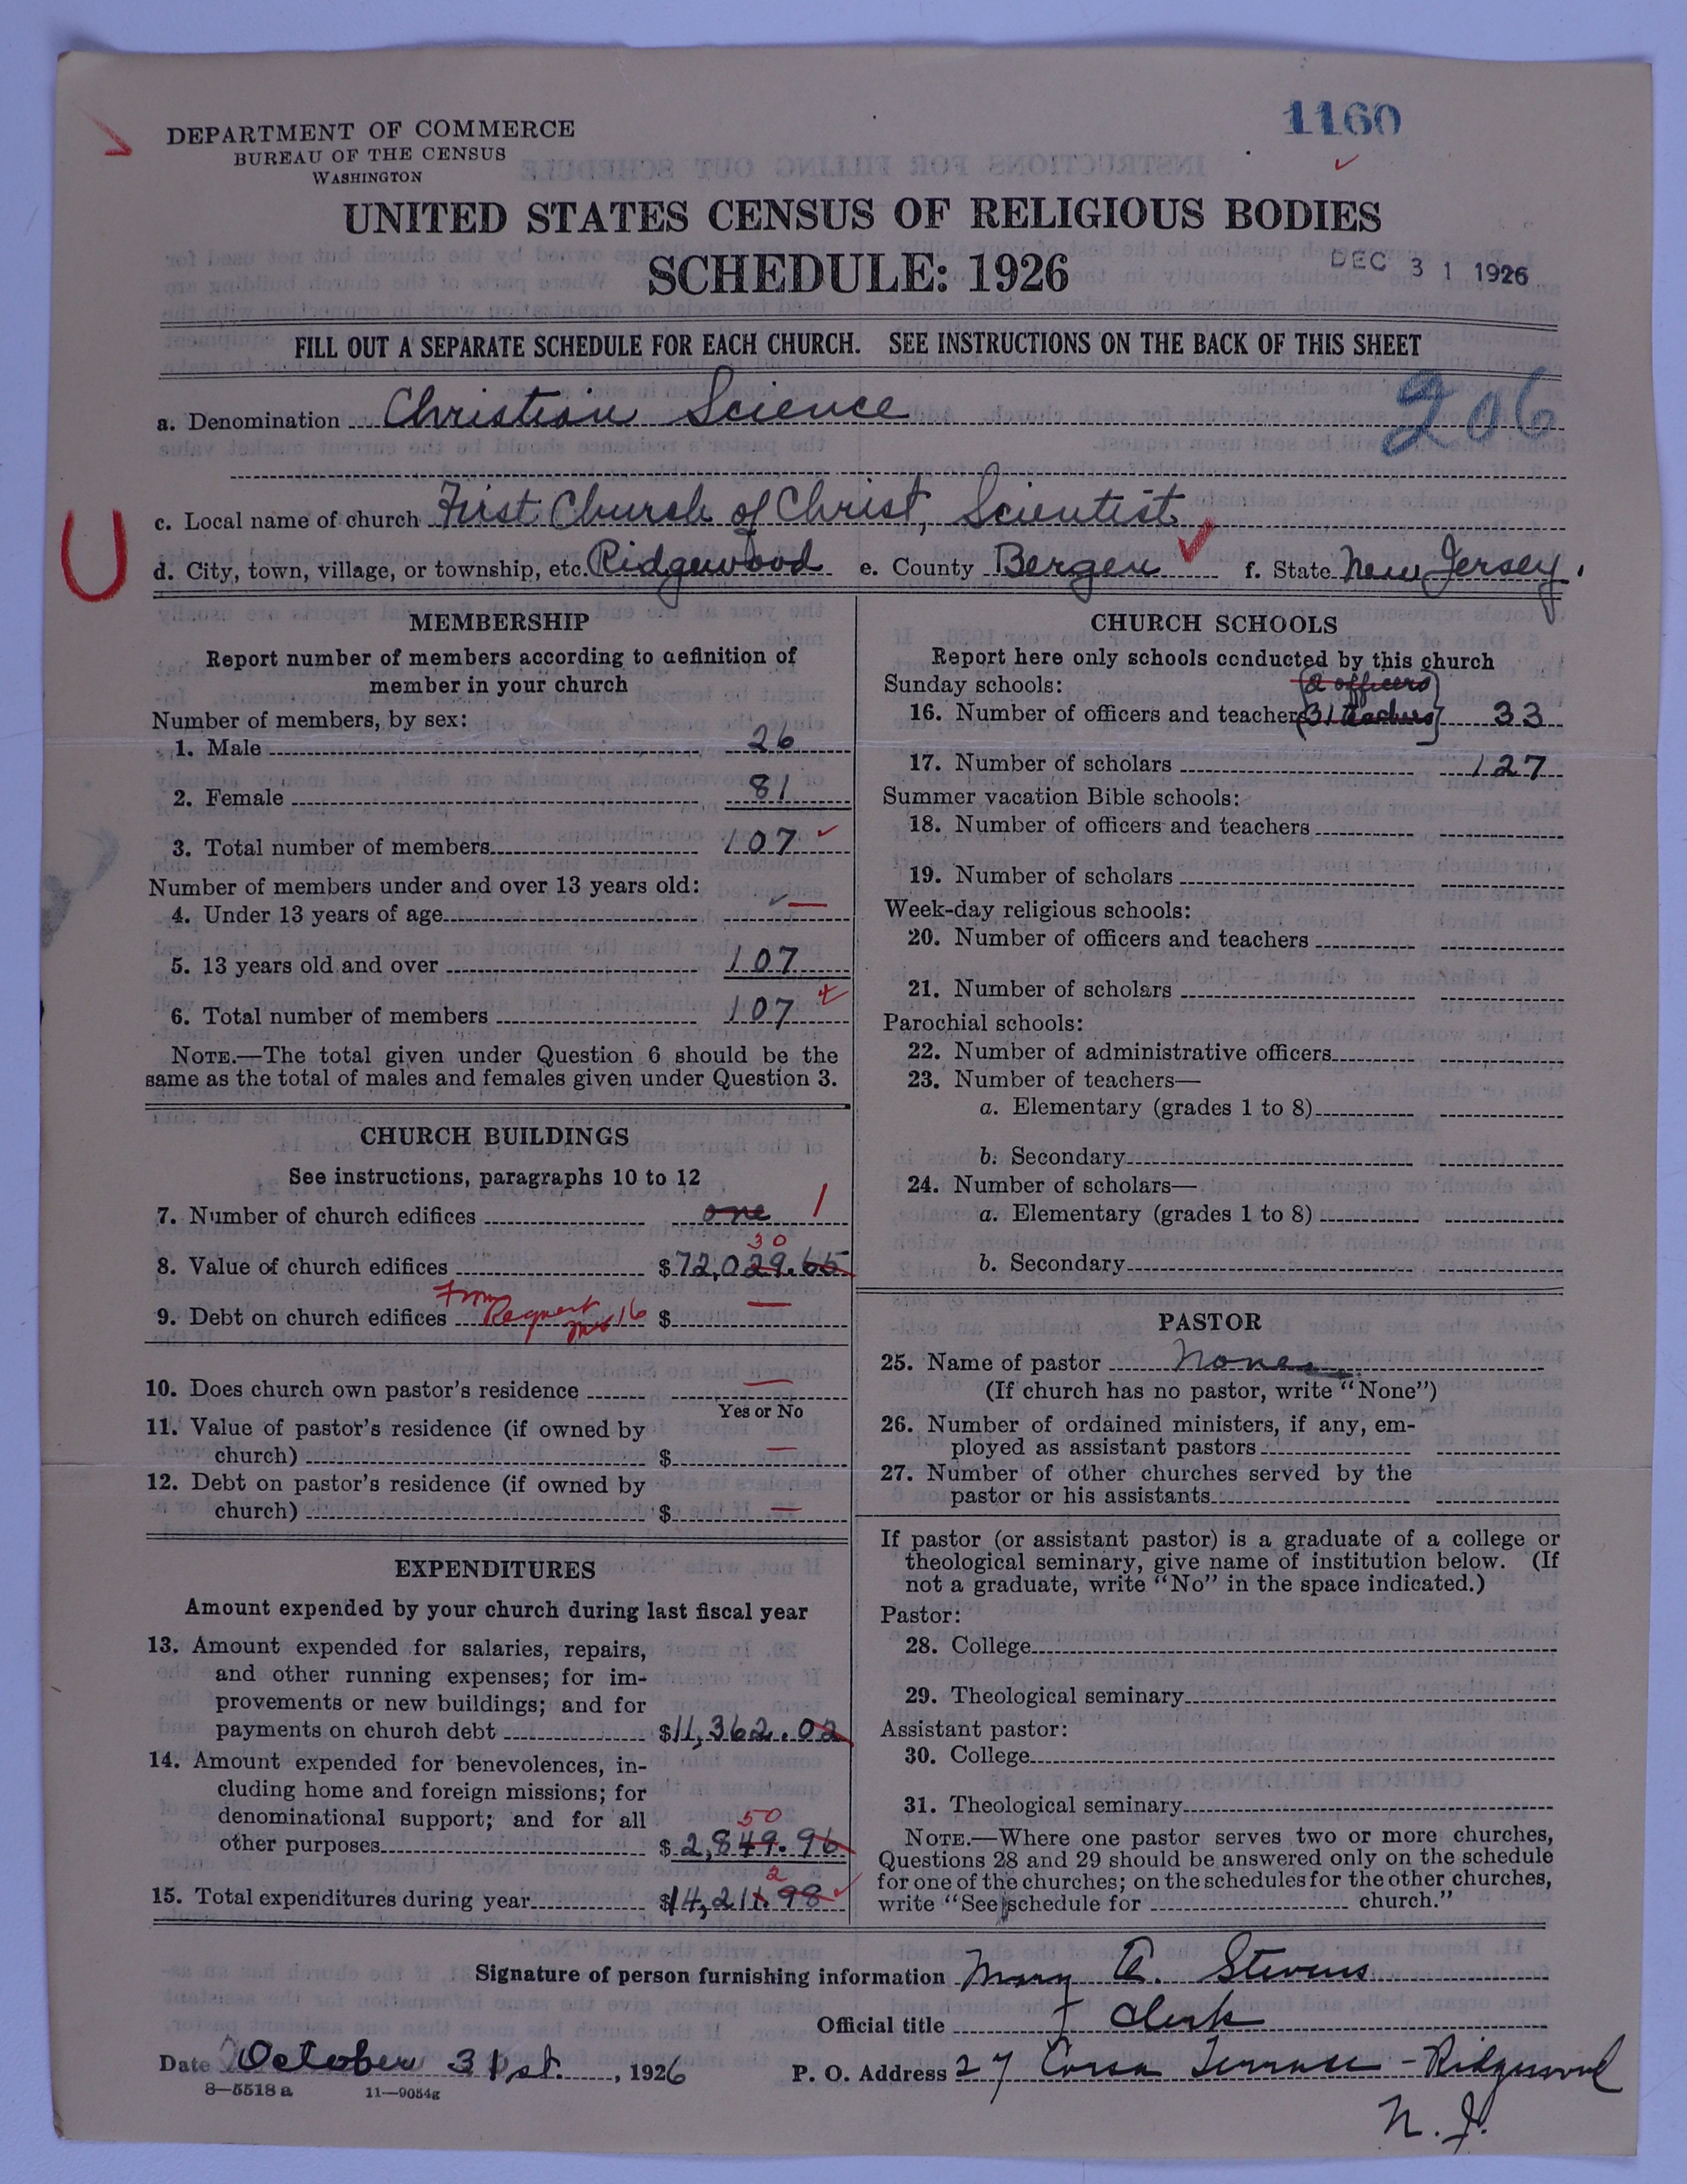 1160
DEPARTMENT OF COMMERCE
BUREAU OF THE CENSUS
WASHINGTON
UNITED STATES CENSUS OF RELIGIOUS BODIES
SCHEDULE: 1926
DEC 31 1926
FILL OUT A SEPARATE SCHEDULE FOR EACH CHURCH. SEE INSTRUCTIONS ON THE BACK OF THIS SHEET
a. Denomination Christian Science
206
c. Local name of church First Church of Christ, Scientist
U
d. City, town, village, or township, etc. Ridgewood e. County Bergen f. State New Jersey.
MEMBERSHIP
Report number of members according to definition of
member in your church
Number of members, by sex:
1. Male 26
2. Female 81
3. Total number of members 107
Number of members under and over 13 years old:
4. Under 13 years of age —
5. 13 years old and over 107
6. Total number of members 107
NOTE.—The total given under Question 6 should be the
same as the total of males and females given under Question 3.
CHURCH BUILDINGS
See instructions, paragraphs 10 to 12
7. Number of church edifices one 1
30
8. Value of church edifices $72,029.65
From
9. Debt on church edifices 16 $ —
10. Does church own pastor's residence —
Yes or No
11. Value of pastor's residence (if owned by
church) $ —
12. Debt on pastor's residence (if owned by
church) $ —
EXPENDITURES
Amount expended by your church during last fiscal year
13. Amount expended for salaries, repairs,
and other running expenses; for im-
provements or new buildings; and for
payments on church debt $11,362.02
14. Amount expended for benevolences, in-
cluding home and foreign missions; for
denominational support; and for all
50
other purposes $2,849.96
2
15. Total expenditures during year $14,211.98
CHURCH SCHOOLS
Report here only schools conducted by this church
Sunday schools: (2 officers)
16. Number of officers and teachers (31 teachers) 33
17. Number of scholars 127
Summer vacation Bible schools:
18. Number of officers and teachers
19. Number of scholars
Week-day religious schools:
20. Number of officers and teachers
21. Number of scholars
Parochial schools:
22. Number of administrative officers
23. Number of teachers—
a. Elementary (grades 1 to 8)
b. Secondary
24. Number of scholars—
a. Elementary (grades 1 to 8)
b. Secondary
PASTOR
25. Name of pastor None
(If church has no pastor, write "None")
26. Number of ordained ministers, if any, em-
ployed as assistant pastors
27. Number of other churches served by the
pastor or his assistants
If pastor (or assistant pastor) is a graduate of a college or
theological seminary, give name of institution below. (If
not a graduate, write "No" in the space indicated.)
Pastor:
28. College
29. Theological seminary
Assistant pastor:
30. College
31. Theological seminary
NOTE.—Where one pastor serves two or more churches,
Questions 28 and 29 should be answered only on the schedule
for one of the churches; on the schedules for the other churches,
write "See schedule for church."
Signature of person furnishing information Mary A. Stevens
Official title Clerk
Date October 31st. , 1926 P. O. Address 27 Corsa Terrace - Ridgewood
N. J.
8—5518 a 11—9054g